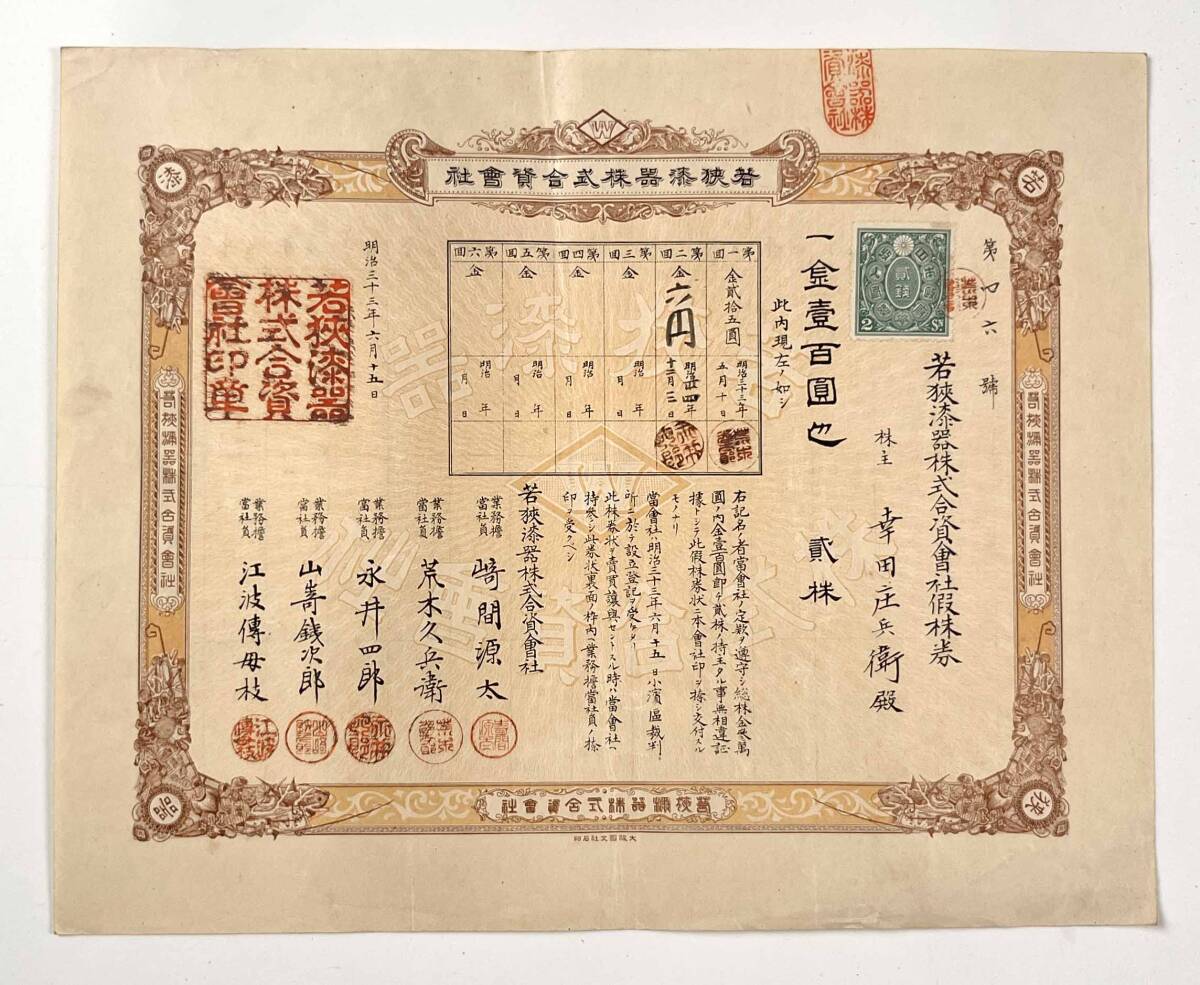 若狹漆器株式合資會社
W
若
漆
狹
器
第四六號
若狹漆器株式合資會社假株券
株主 幸田庄兵衛殿
貳錢
2 Sn
一金壹百圓也 貳株
此内現左ノ如シ
第一回 金貳拾五圓 明治三十三年五月十日
第二回 金六円 明治卅四年十二月三日
第三回 金 明治 年 月 日
第四回 金 明治 年 月 日
第五回 金 明治 年 月 日
第六回 金 明治 年 月 日
右記名ノ者當會社ノ定欵ヲ遵守シ総株金參萬
圓ノ内金壹百圓卽チ貳株ノ持主タル事無相違証
據トシテ此假株券状ニ本會社印ヲ捺シ交付スル
モノナリ
當會社ハ明治三十三年六月十五日小濱區裁判
所ニ於テ設立登記ヲ受ケタリ
此株券状ヲ賣買讓與セントスル時ハ當會社ヘ
持參シ此券状裏面ノ枠内ヘ業務擔當社員ノ捺
印ヲ受クヘシ
若狹漆器株式合資會社
業務擔當社員 﨑間源太
業務擔當社員 荒木久兵衛
業務擔當社員 永井四郎
業務擔當社員 山嵜錢次郎
業務擔當社員 江波傳母枝
明治三十三年六月十五日
若狹漆器株式合資會社印章
若狹漆器株式合資會社
若狹漆器株式合資會社
若狹漆器株式合資會社
若狹漆器株式合資會社